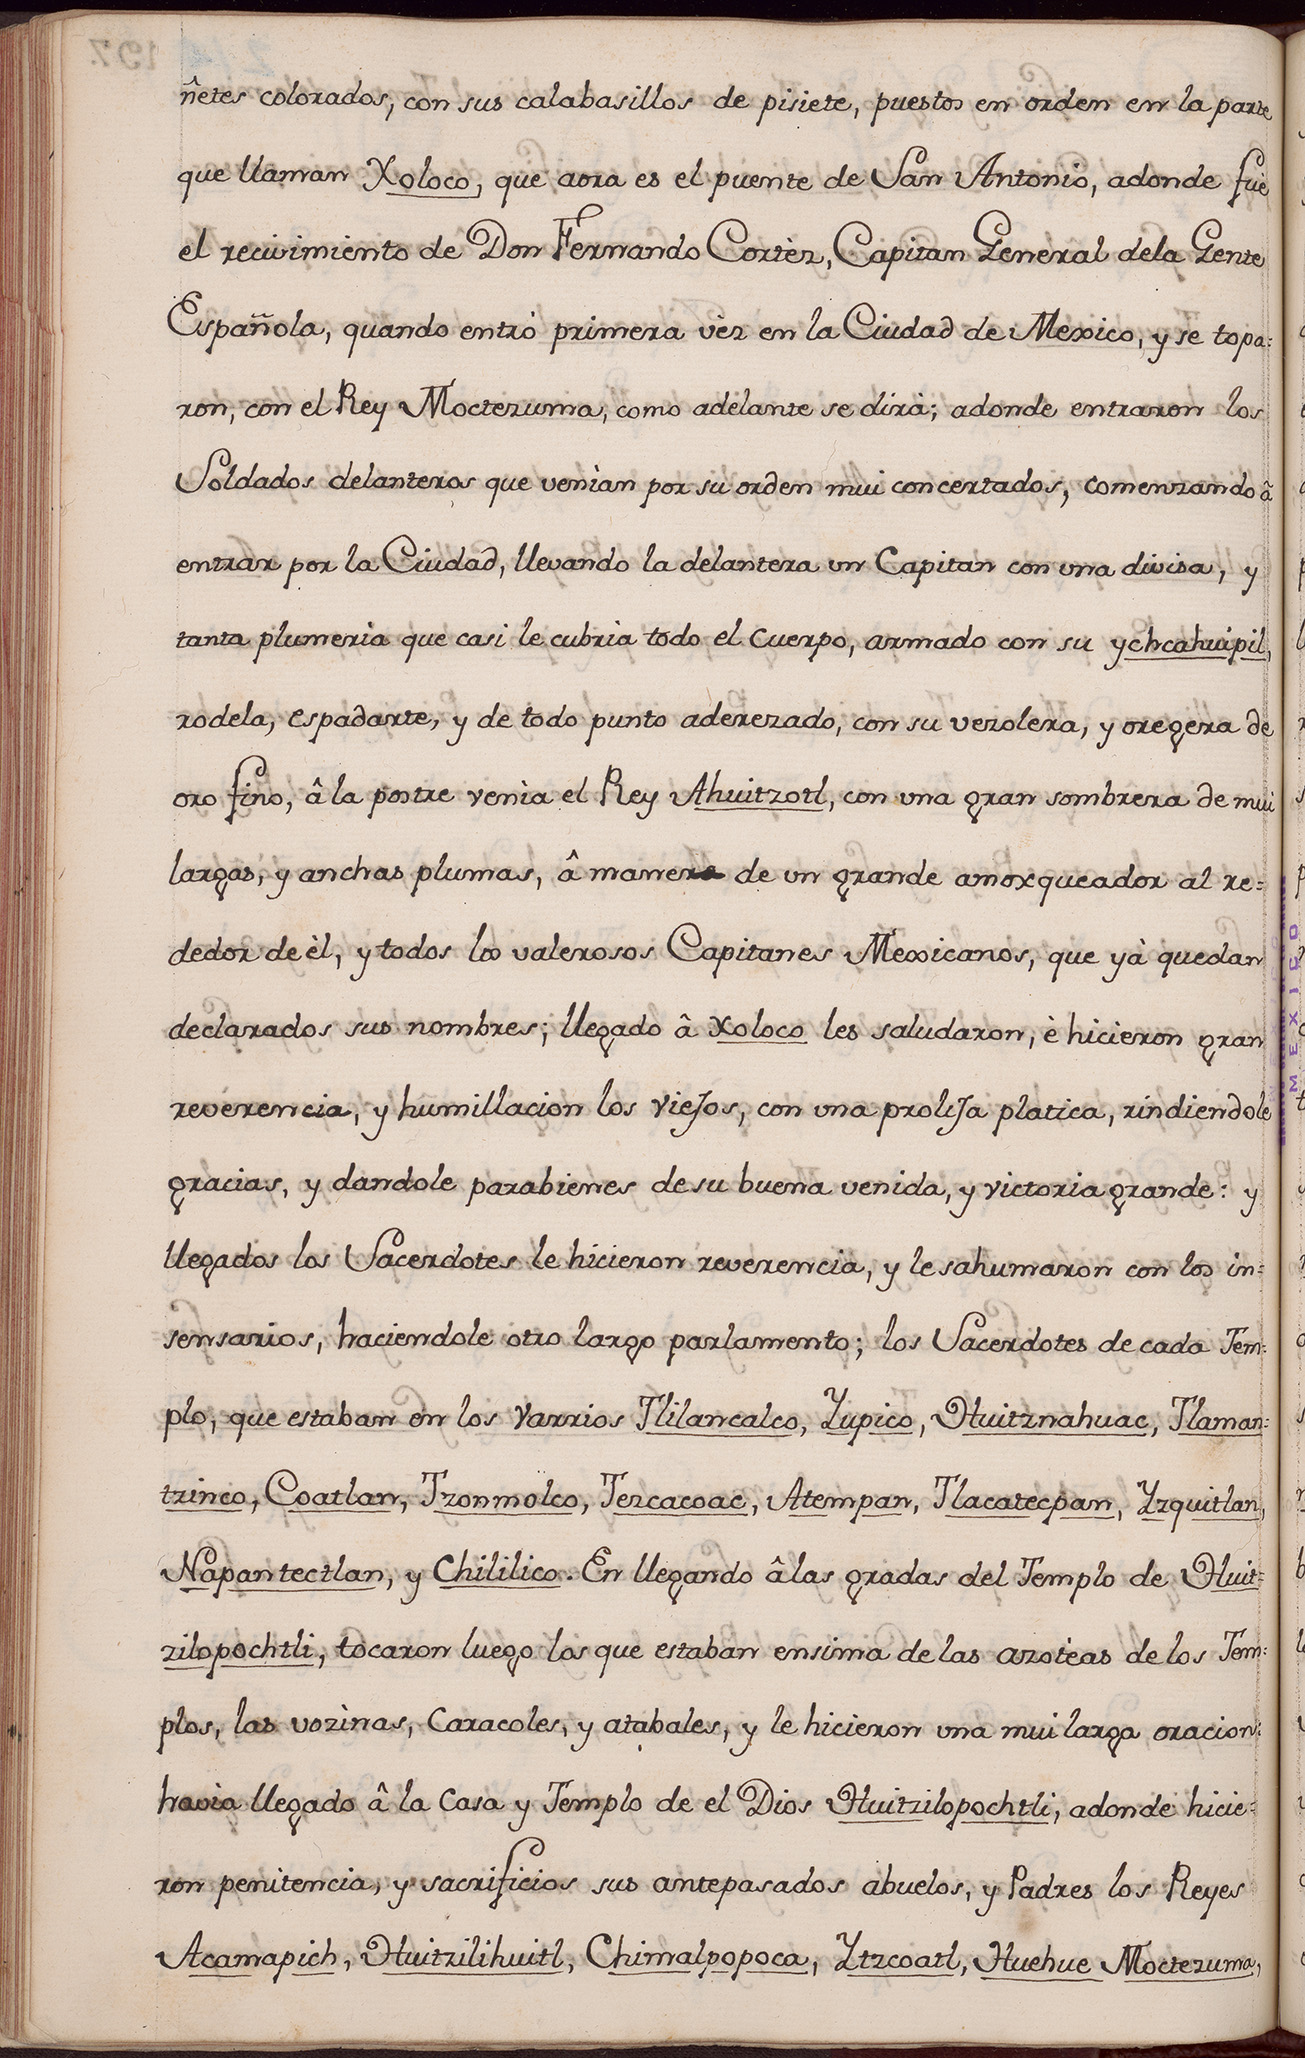 ñetes colorados, con sus calabasillos de pisiete, puestos en orden en la parte
que llaman Xoloco, que aora es el puente de San Antonio, adonde fuè
el recivimiento de Don Fernando Cortèz, Capitan General dela Gente
Española, quando entró primera vèz en la Ciudad de Mexico, y se topa=
ron, con el Rey Moctezuma, como adelante se dirà; adonde entraron los
Soldados delanteros que venìan por su orden mui concertados, comenzando â
entrar por la Ciudad, llevando la delantera un Capitan con una divisa, y
tanta plumeria que casi le cubria todo el cuerpo, armado con su ychcahuipil,
rodela, espadarte, y de todo punto aderezado, con su vezolera, y oregera de
oro fino, â la postre venìa el Rey Ahuitzotl, con una gran sombrera de mui
largas, y anchas plumas, â manera de un grande amoxqueador al re=
dedor de èl, y todos los valerosos Capitanes Mexicanos, que yà quedan
declarados sus nombres; llegado â Xoloco les saludaron, è hicieron gran
reverencia, y humillacion los viejos, con una prolija platica, rindiendole
gracias, y dandole parabienes de su buena venida, y victoria grande: y
llegados los Sacerdotes le hicieron reverencia, y le sahumaron con los in=
sensarios, haciendole otro largo parlamento; los Sacerdotes de cada Tem=
plo, que estaban en los varrios Tlilancalco, Yupico, Huitznahuac, Tlaman=
tzinco, Coatlan, Tzonmolco, Tezcacoac, Atempan, Tlacatecpam, Yzquitlan,
Napantectlan, y Chililico. En llegando â las gradas del Templo de Huit=
zilopochtli, tocaron luego los que estaban ensima de las azotèas de los Tem=
plos, las vozìnas, caracoles, y atabales, y le hicieron una mui larga oracion:
havìa llegado â la Casa y Templo de el Dios Huitzilopochtli, adonde hicie=
ron penitencia, y sacrificios sus antepasados abuelos, y Padres los Reyes
Acamapich, Huitzilihuitl, Chimalpopoca, Ytzcoatl, Huehue Moctezuma,
MEXICO